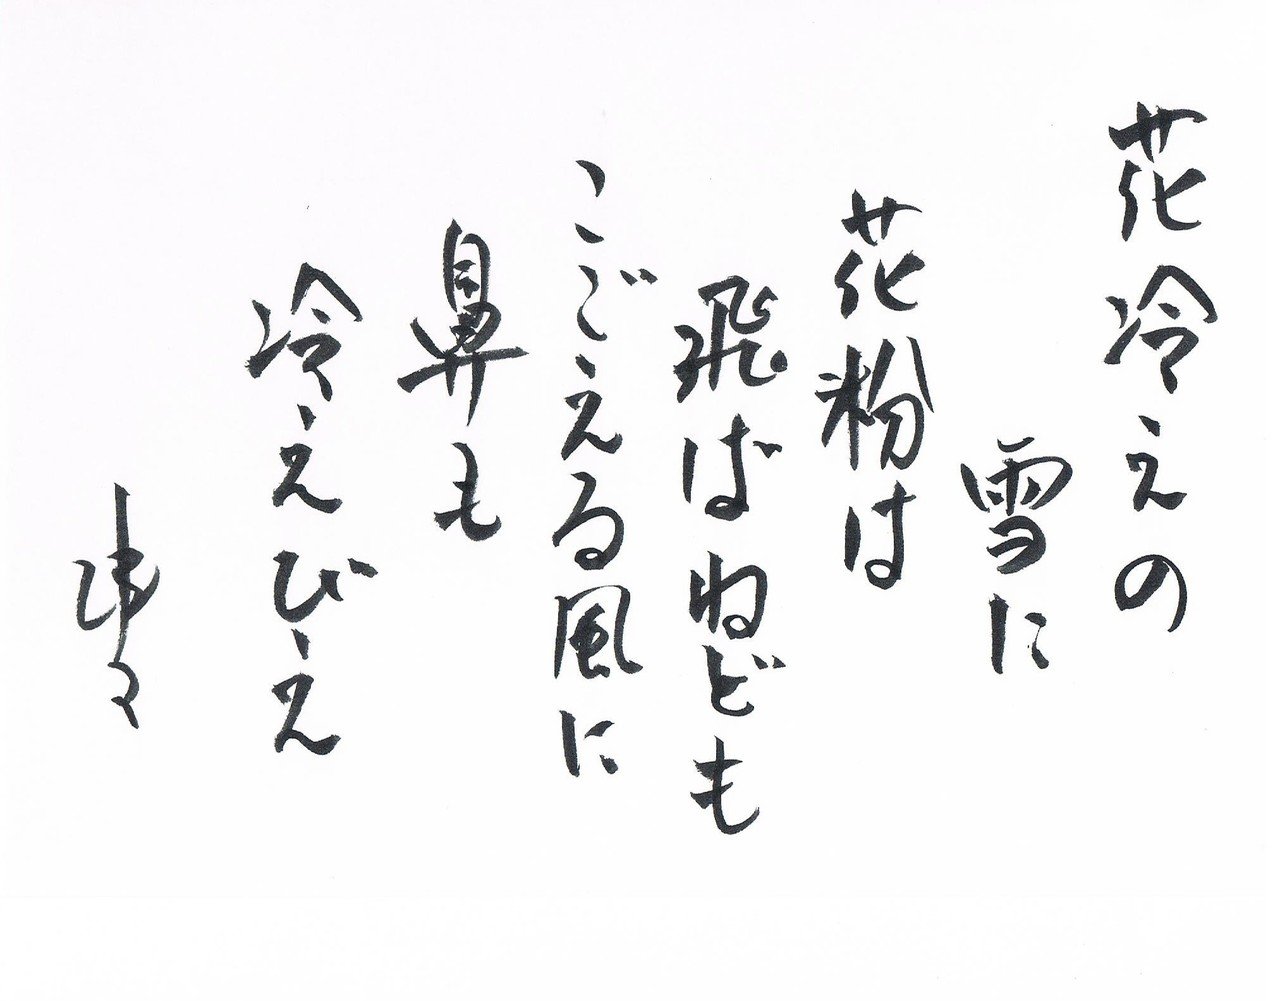 花冷えの
雪に
花粉は
飛ばねども
こごえる風に
鼻も
冷えびえ